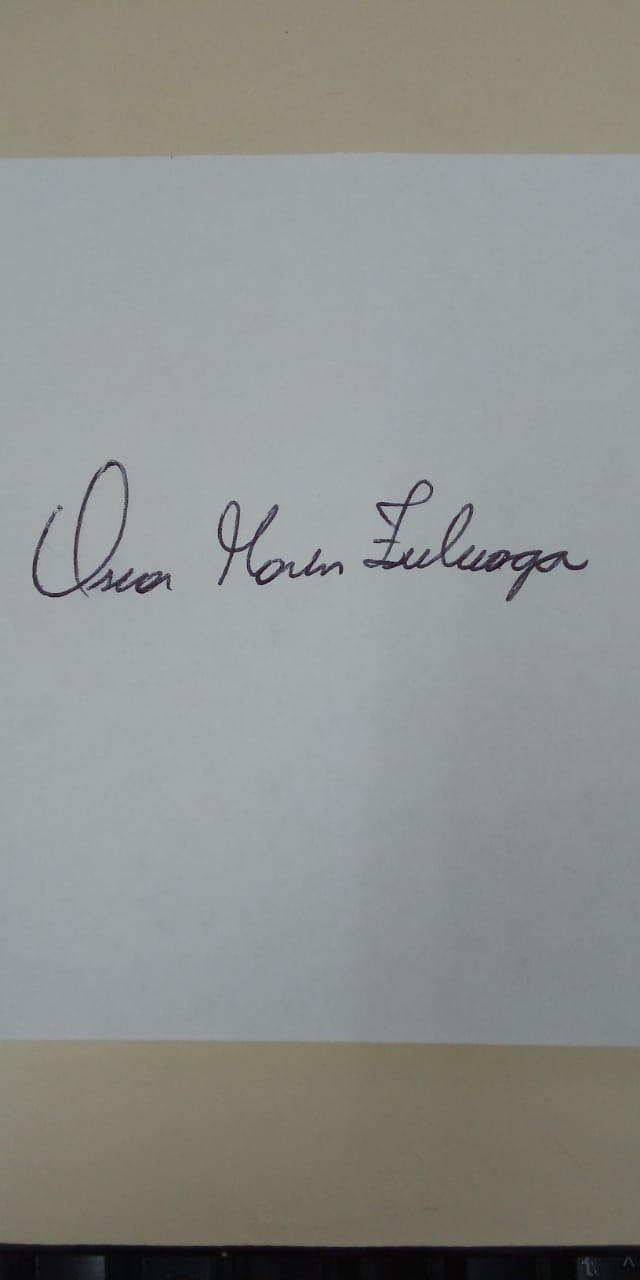 Oscar Marin Zuluaga